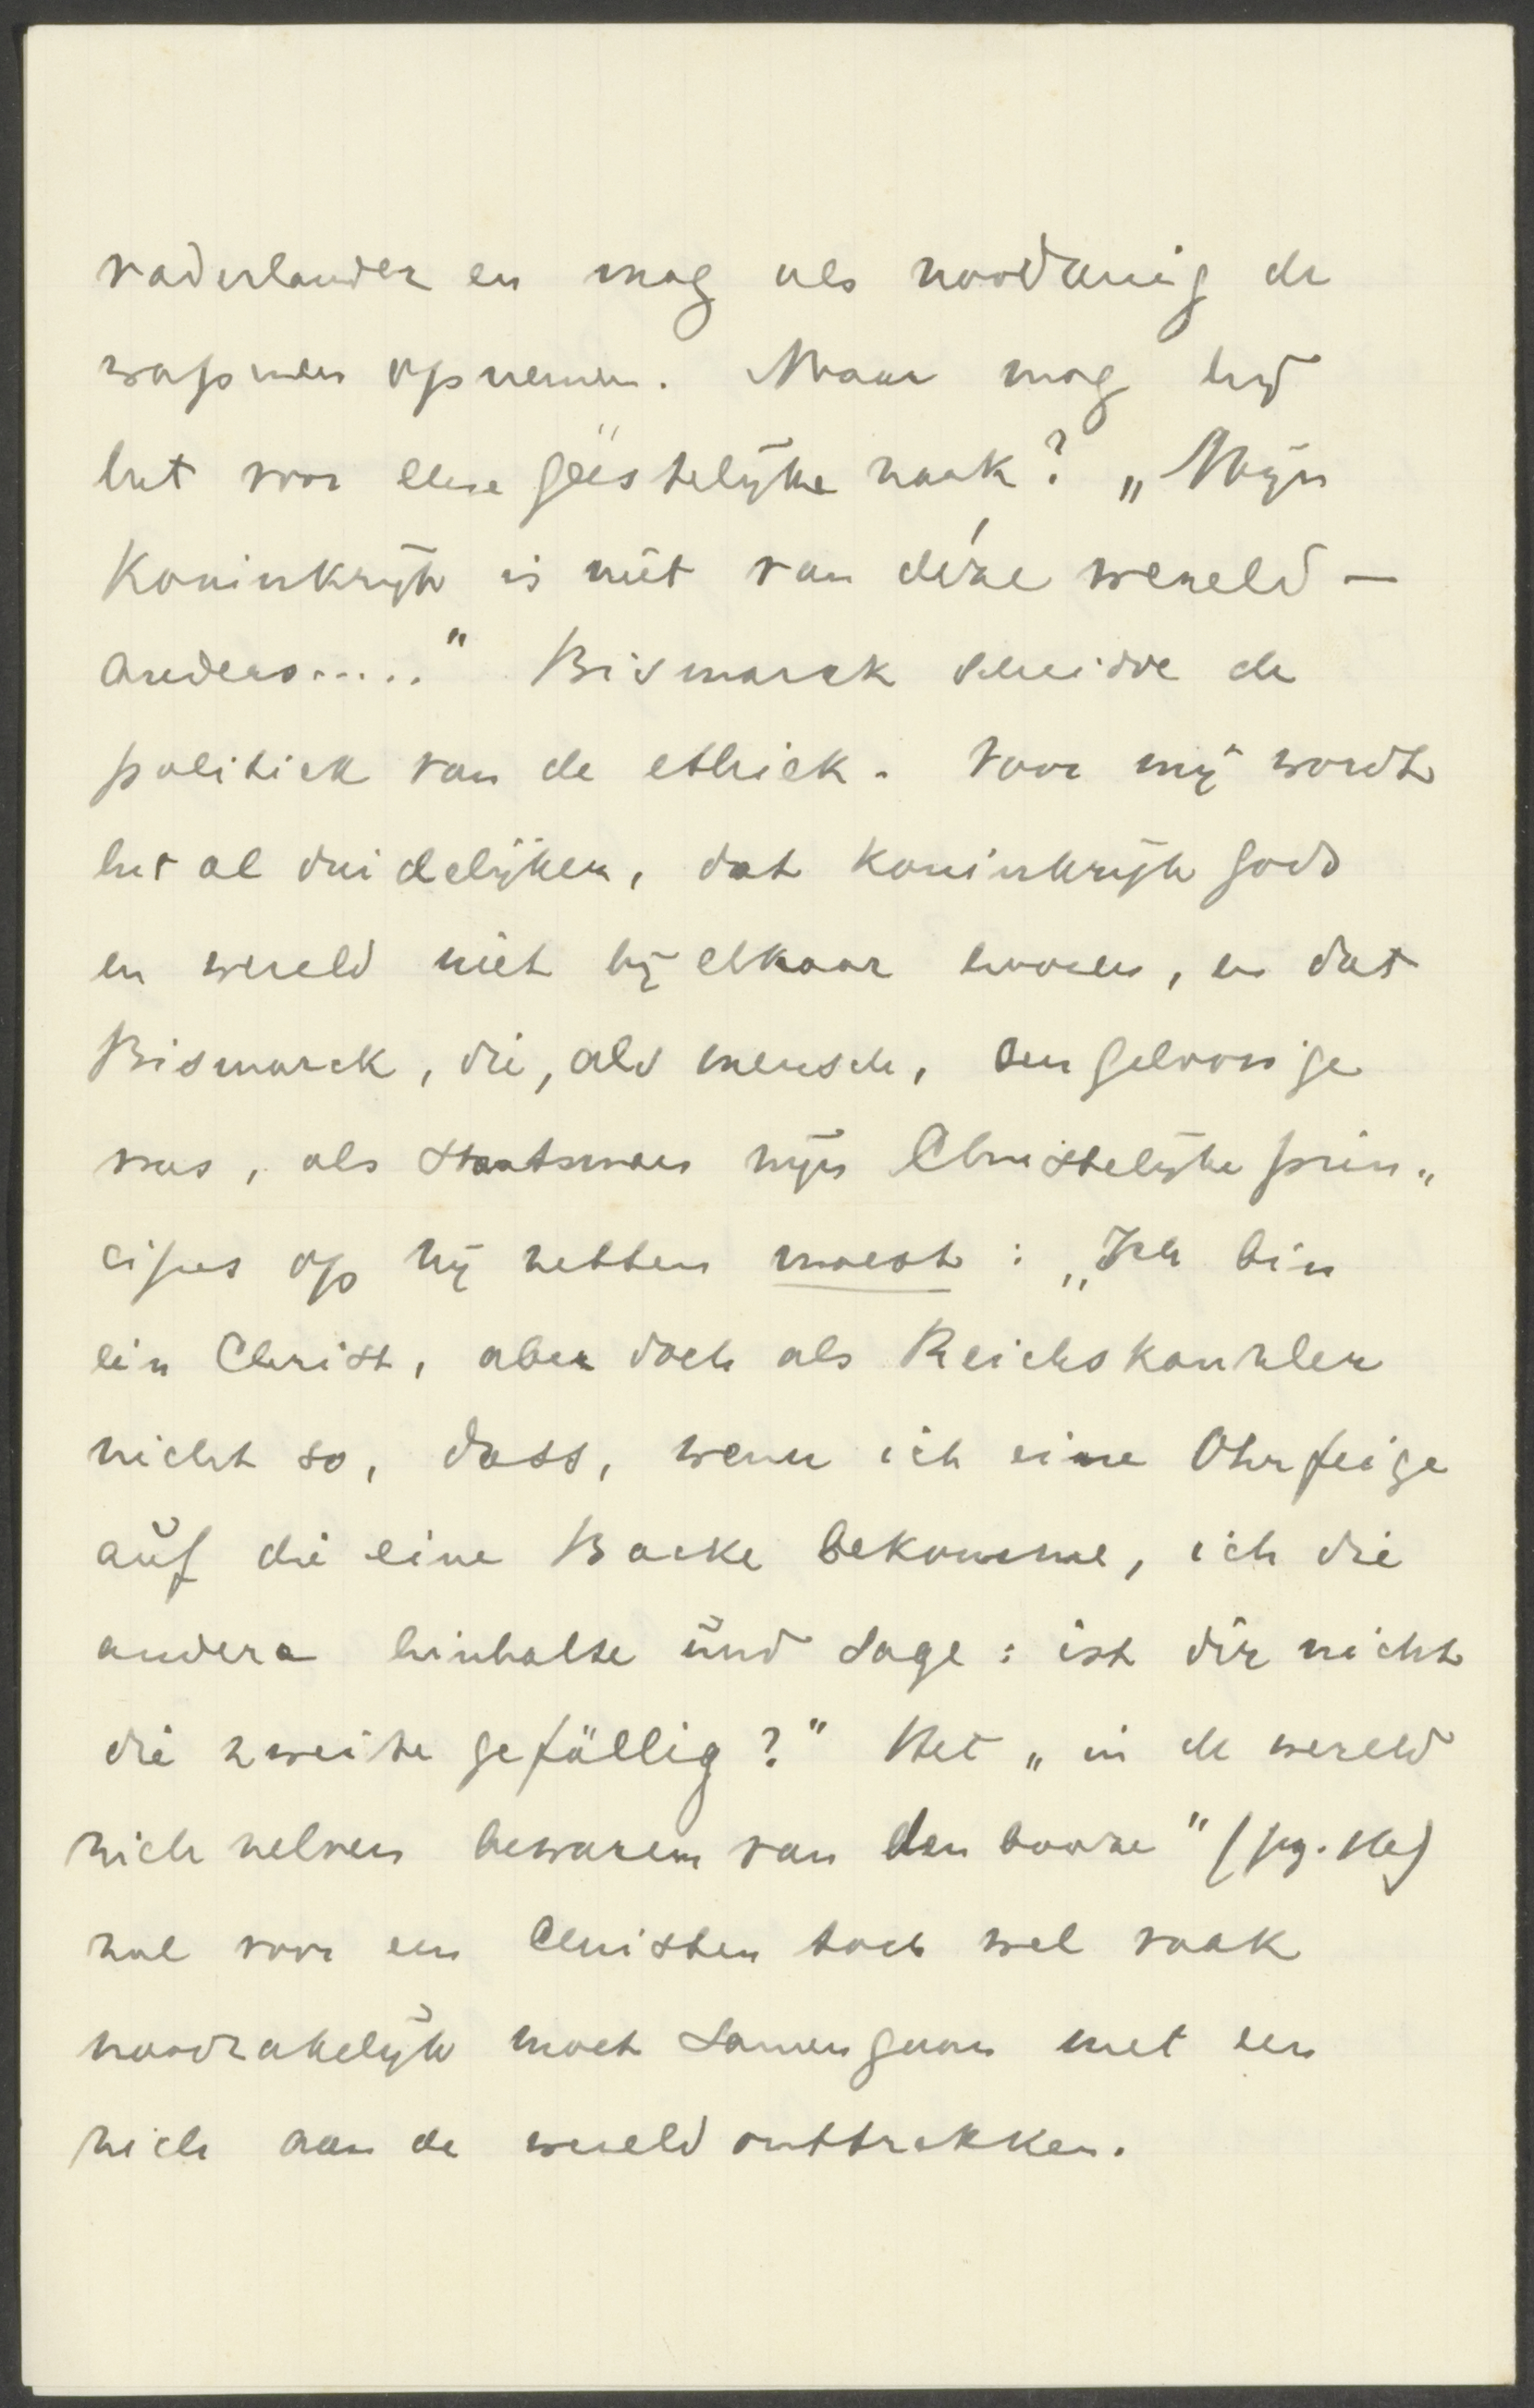 vaderlander en mag als zoodanig de
wapenen opnemen. Maar mag hij
het voor eene geestelijke zaak? „Mijn
Koninkrijk is niet van déze wereld —
anders....." Bismarck scheidde de
politiek van de ethiek. Voor mij wordt
het al duidelijker, dat Koninkrijk Gods
en wereld niet bij elkaar hooren, en dat
Bismarck, die, als mensch, een geloovige
was, als staatsman zijn Christelijke prin„
cipes op zij zetten moest: „Ich bin
ein Christ, aber doch als Reichskanzler
nicht so, dass, wenn ich eine Ohrfeige
auf die eine Backe bekomme, ich die
andere hinhalte und sage: ist dir nicht
die zweite gefällig?" Het „in de wereld
zich zelven bewaren van den booze" (pg. 16)
zal voor een Christen toch wel vaak
noodzakelijk moet samengaan met een
zich aan de wereld onttrekken.